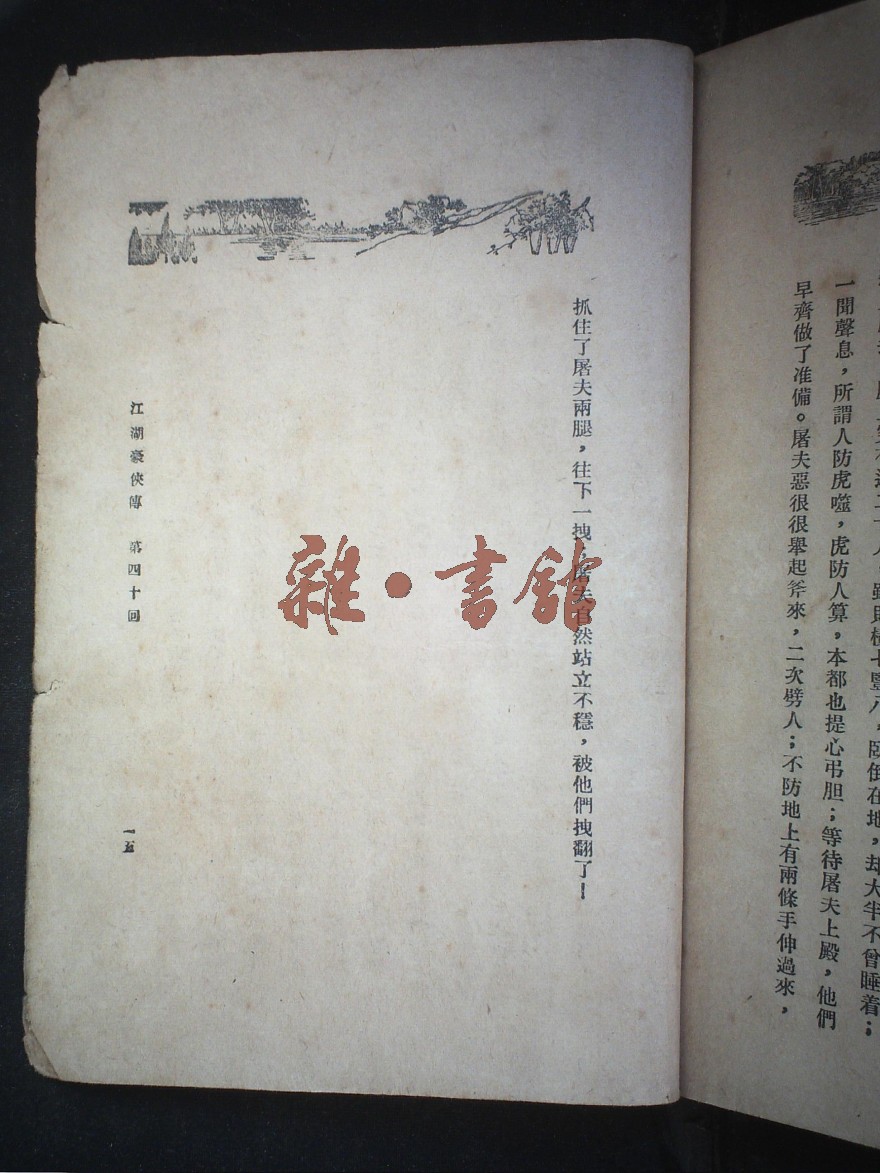 二十人，雖則橫七豎八，臥倒在地，却大半不曾睡着；
一聞聲息，所謂人防虎噬，虎防人算，本都也提心弔胆；等待屠夫上殿，他們
早齊做了准備。屠夫惡很很舉起斧來，二次劈人；不防地上有兩條手伸過來，
抓住了屠夫兩腿，往下一拽，屠夫自然站立不穩，被他們拽翻了！
江湖豪俠傳　第四十回
一五
雜・書館